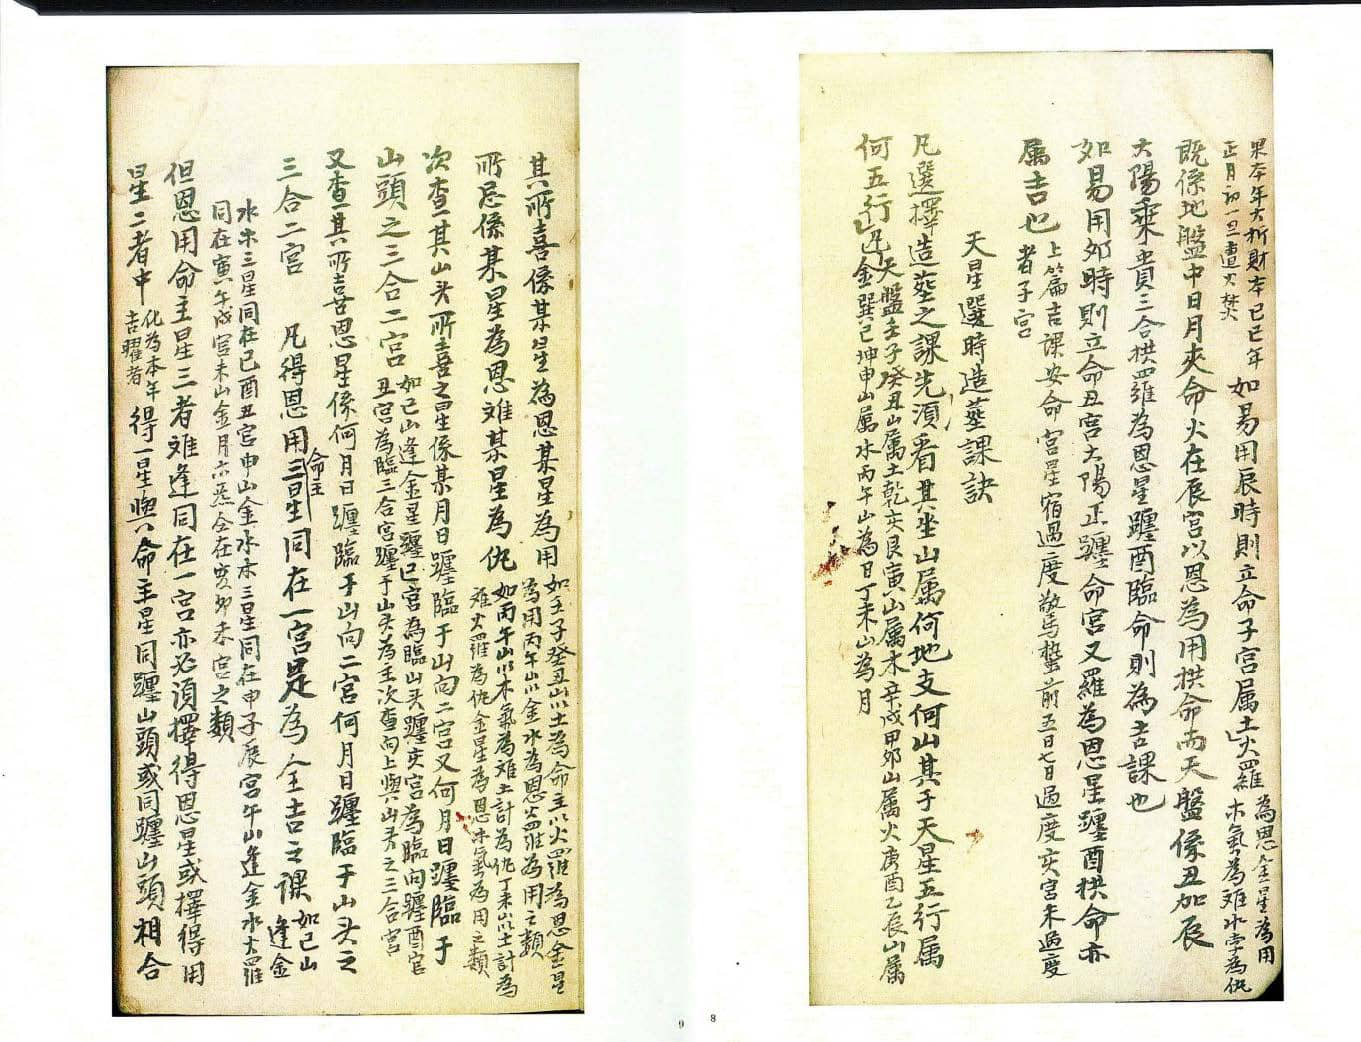 果本年大折財本己巳年
正月初一旦遭火焚
如易用辰時則立命子宮属土火羅
為恩金星為用
木氣為难水孛為仇
既係地盤中日月夾命火在辰宮以恩為用拱命而天盤係丑加辰
太陽乘貴三合拱羅為恩星躔酉臨命則為吉課也
如易用夘時則立命丑宮太陽正躔命宮又羅為恩星躔酉拱命亦
属吉也
上篇吉課安命宮星宿過度驚蟄前五七日過度亥宮未過度
者子宮
天星選時造塟課訣
凡選擇造塟之課先湏看其坐山属何地支何山其于天星五行属
何五行
凡天盤壬子癸丑山属土乾亥艮寅山属木辛戌甲夘山属火庚酉乙辰山属
金巽己坤申山属水丙午山為日丁未山為月
其所喜係某星為恩某星為用
如壬子癸丑山以土為命主以火羅為恩金星
為用丙午山以金水為恩火羅為用之類
所忌係某星為恩难某星為仇
如丙午山以木氣為难土計為仇丁未山以土計為
难火羅為仇金星為恩水氣為用之類
次查其山头所喜之星係某月日躔臨于山向二宮又何月日躔臨于
山頭之三合二宮
如己山逢金星躔巳宮為臨山头躔亥宮為臨向躔酉宮
丑宮為臨三合宮躔于山头為主次查向上與山头之三合宮
又查其所喜恩星係何月日躔臨于山向二宮何月日躔臨于山头之
三合二宮
凡得恩用命主三星同在一宮是為全吉之課
如己山
逢金
水木三星同在巳酉丑宮申山金水木三星同在申子辰宮午山逢金水火羅
同在寅午戌宮未山金月六炁会在亥夘未宮之類
但恩用命主星三者难逢同在一宮亦必湏擇得恩星或擇得用
星二者中
化為本年
吉曜者
得一星與命主星同躔山頭或同躔山頭相合
9
8